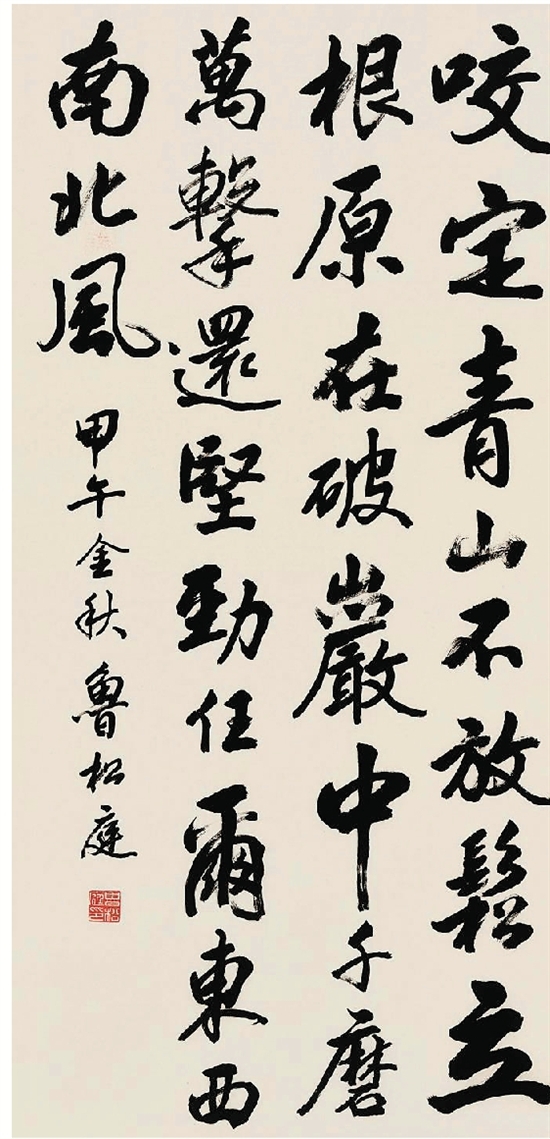 咬定青山不放鬆立
根原在破巖中千磨
萬擊還堅勁任爾東西
南北風
甲午金秋魯松庭